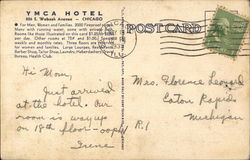 YMCA HOTEL
826 S. Wabash Avenue - CHICAGO
For Men, Women and Families. 2000 Fireproof rooms.
Many with running water, some with private bath.
weekly and monthly rates. Three floors are reserved
for women and families. Large Lounges, Restaurants,
Barber Shop, Tailor Shop, Laundry, Haberdashery,
Bureau, Health Club.
POST CARD
Hi Mom,
Just arrived
at the hotel. Our
room is way up
on 18th floor - oops
Irene
Mrs. Florence Leonard
Eaton Rapids
Michigan
R.1